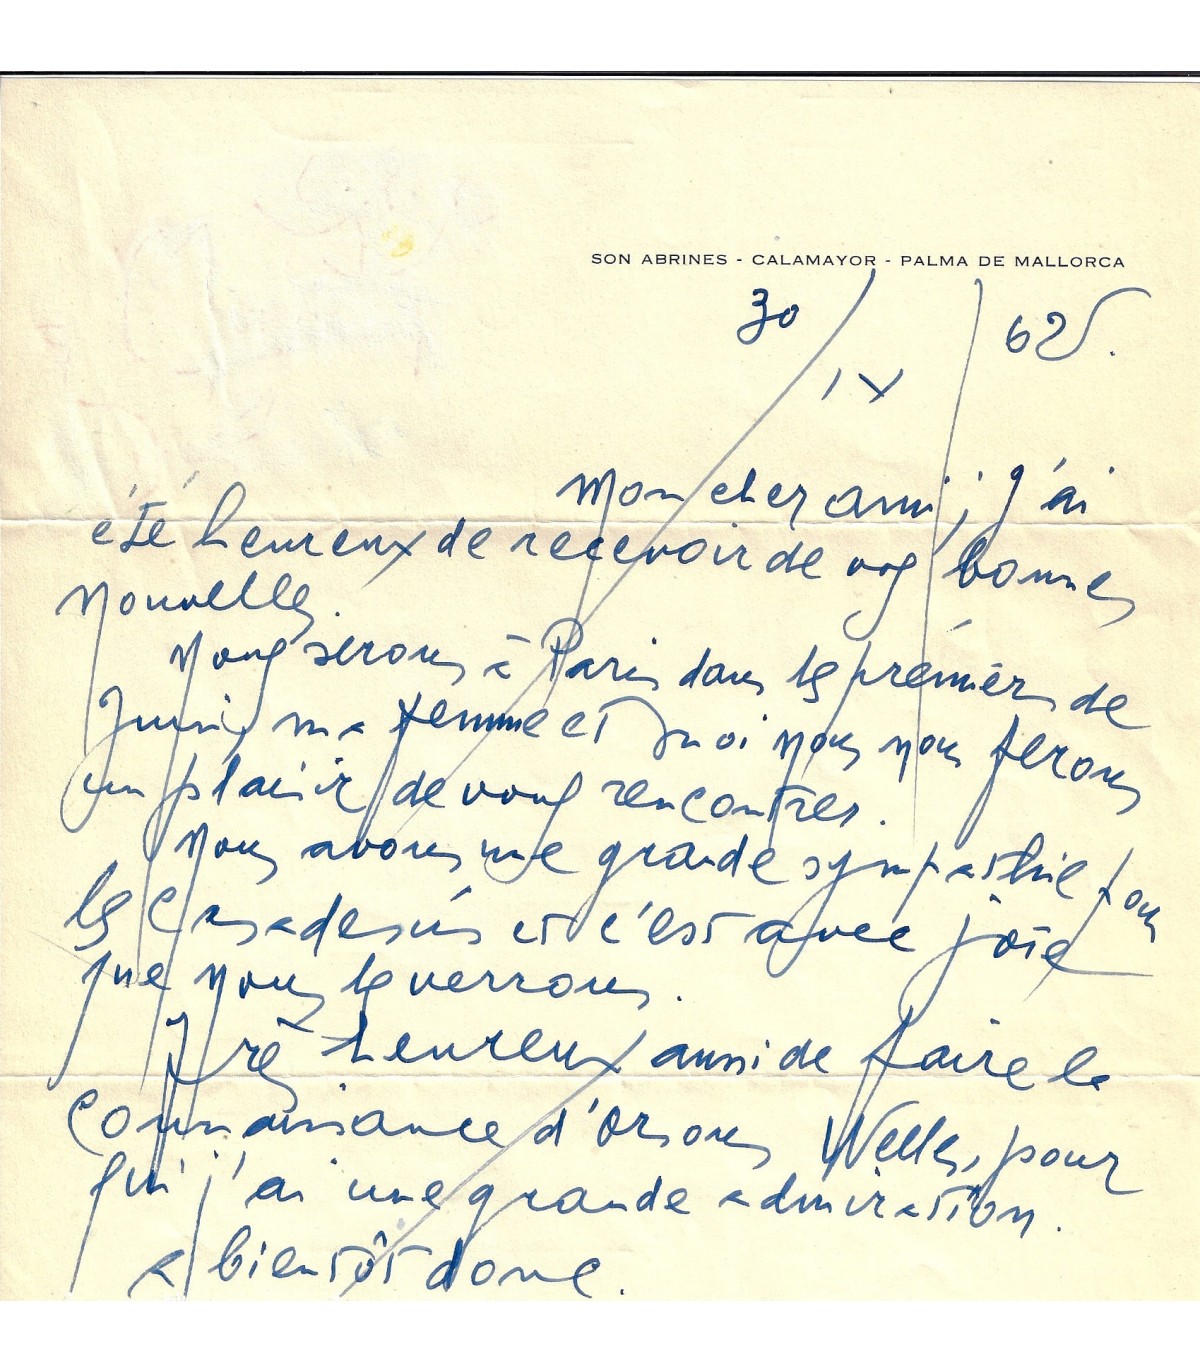 SON ABRINES - CALAMAYOR - PALMA DE MALLORCA
30 / IX / 625.
Mon cher ami, j'ai
été heureux de recevoir de vos bonnes
nouvelles.
Nous serons à Paris dans les prémiérs de
Juin, ma femme et moi nous nous ferons
un plaisir de vous rencontrer.
Nous avons une grande sympathie pour
les Casadesús et c'est avec joie
que nous les verrons.
Très heureux aussi de faire la
connaissance d'Orsons Welles, pour
qui j'ai une grande admiration.
a bientôt donc.